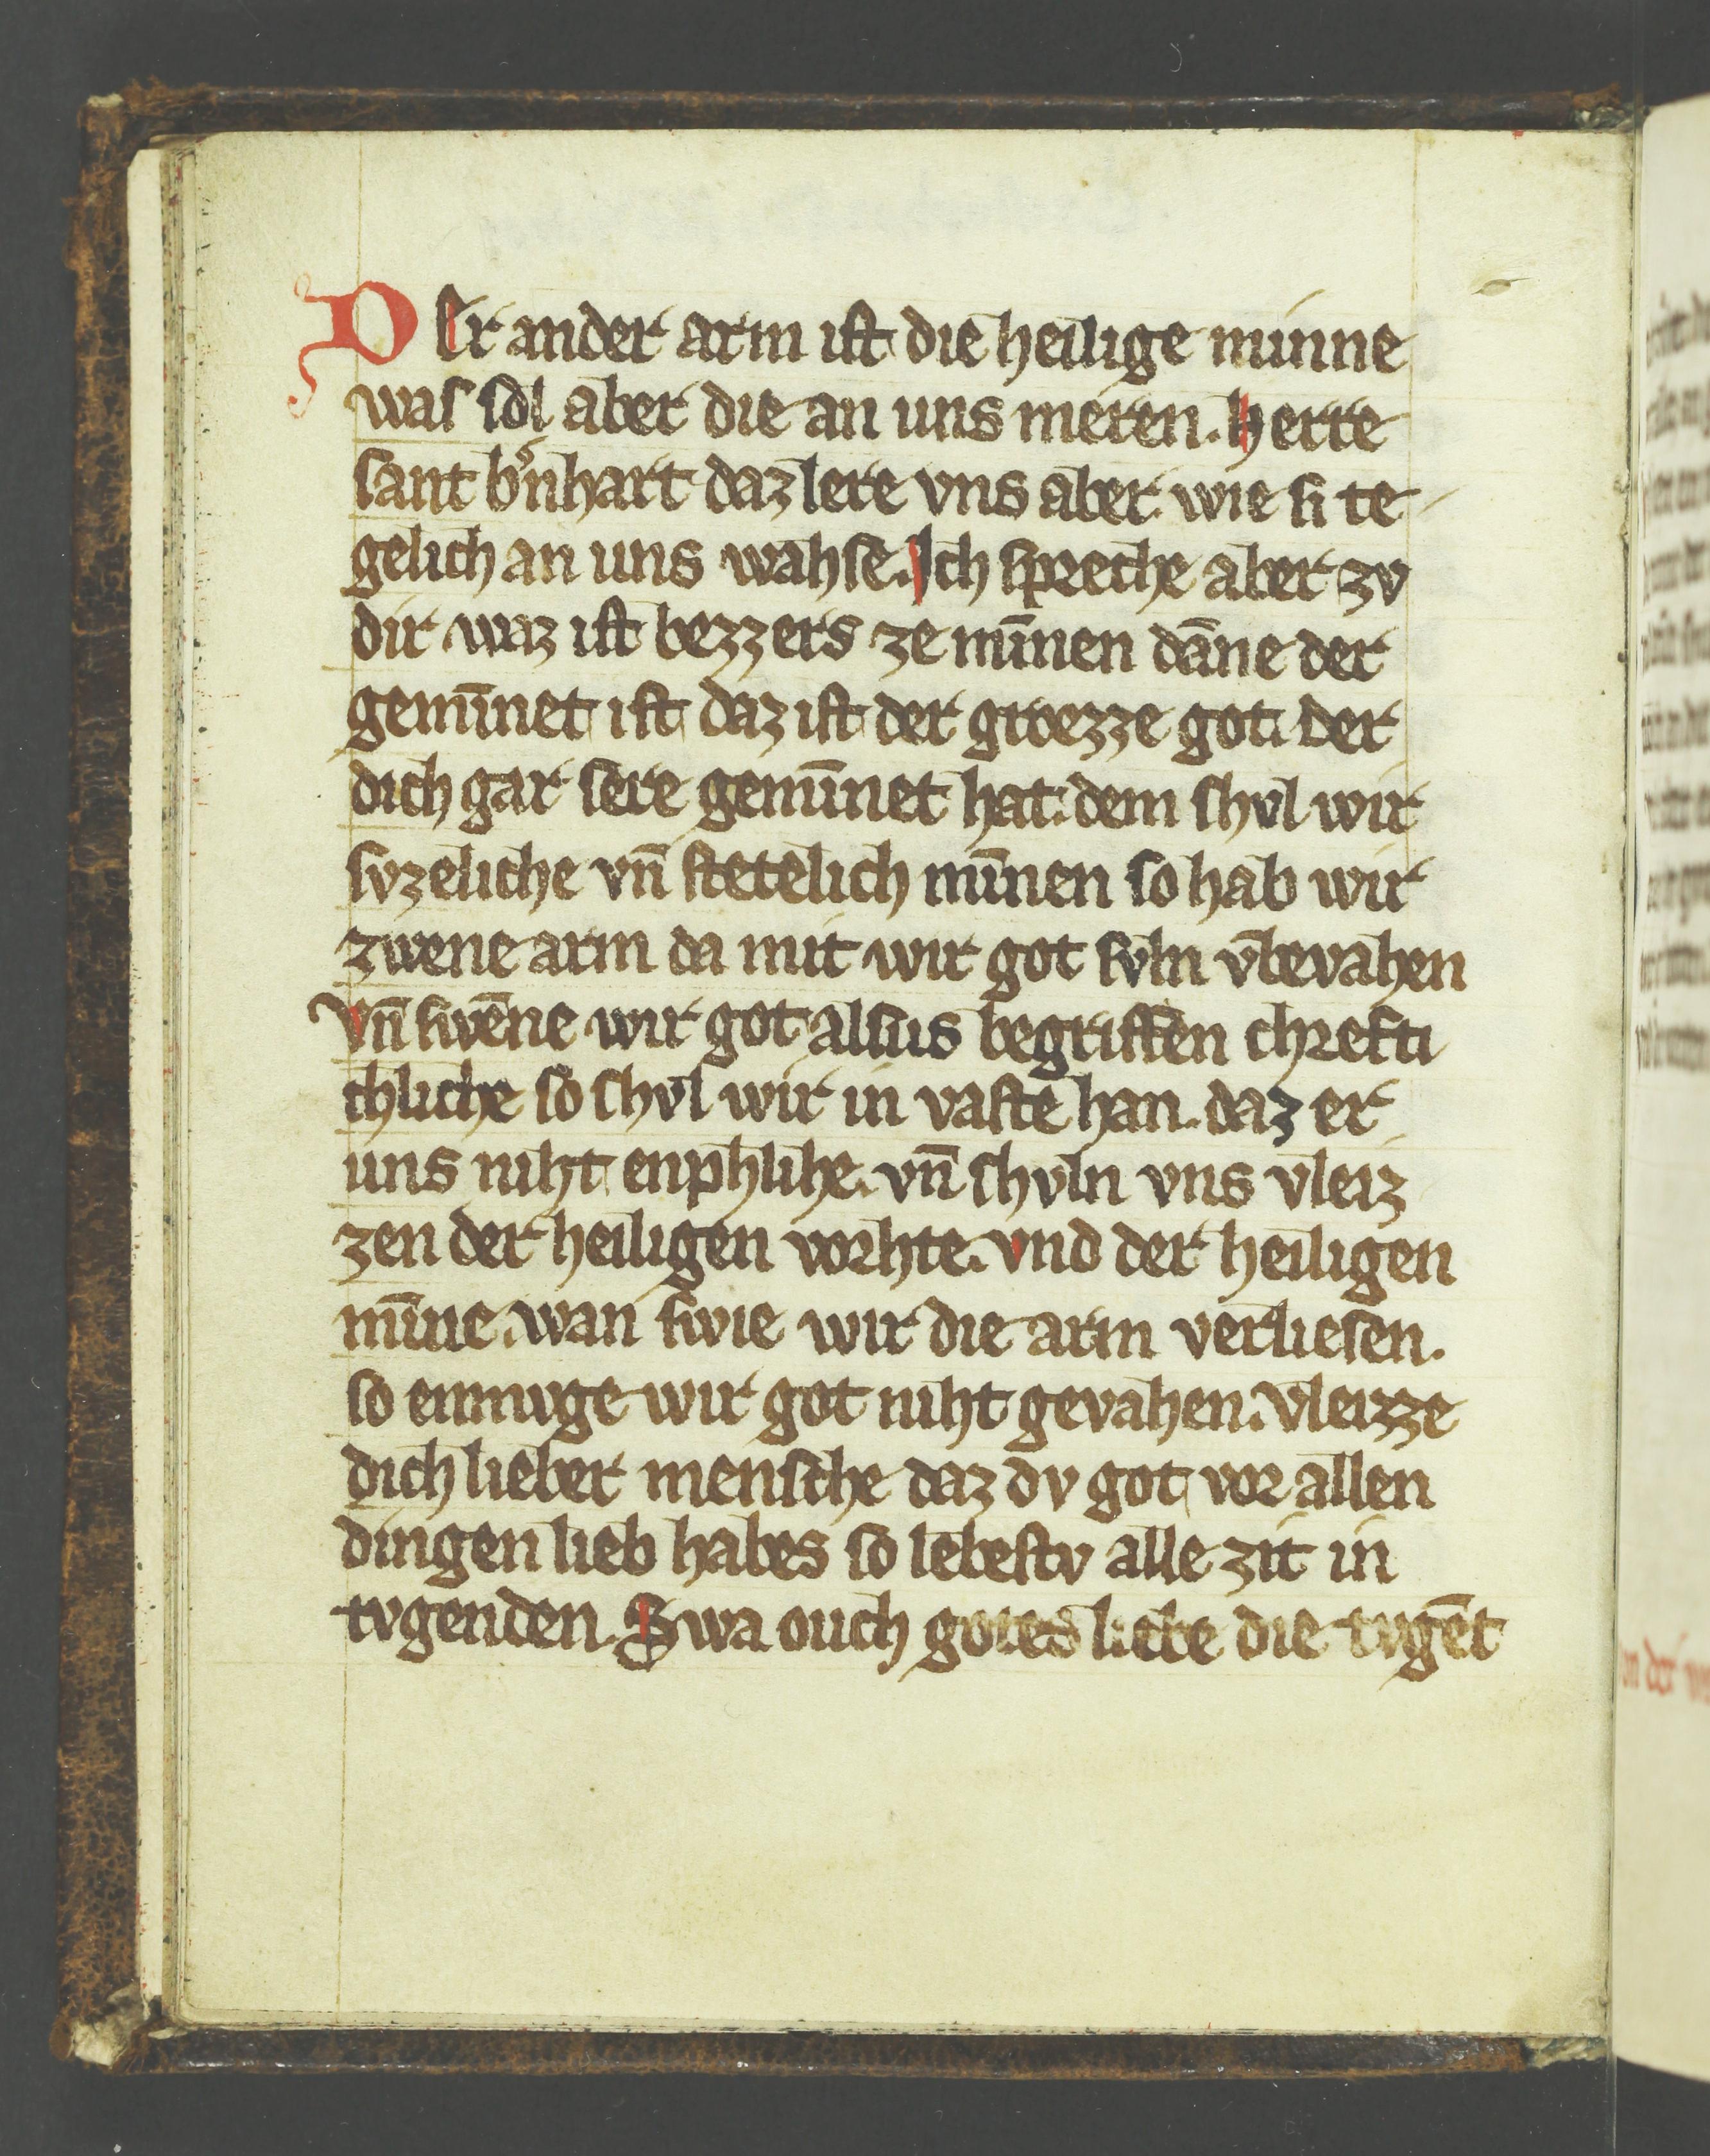 DEr ander arm ist die heilige minne
was sol aber die an uns meren. Herre
sant b'nhart daz lere vns aber wie si te
gelich an uns wahse. Ich spreche aber zv
dir waz ist bezzers ze mīnen dāne der
gemīnet ist daz ist der groezze got. Der
dich gar sere gemīnet hat. dem shvl wir
svzeliche vn̄ stetelich mīnen so hab wir
zwene arm da mit wir got svln v̄bevahen
Vn̄ swēne wir got alsus begriffen chrefti
chliche so shvl wir in vaste han. daz er
uns niht enphlihe. vn̄ shvln vns vleiz
zen der heiligen vorhte. vnd der heiligen
mīne. wan swie wir die arm verliesen.
so enmuge wir got niht gevahen. Vleizze
dich lieber mensche daz dv got vor allen
dingen lieb habes so lebestv alle zit in
tvgenden. Swa ouch gotes liebe die tvgēt